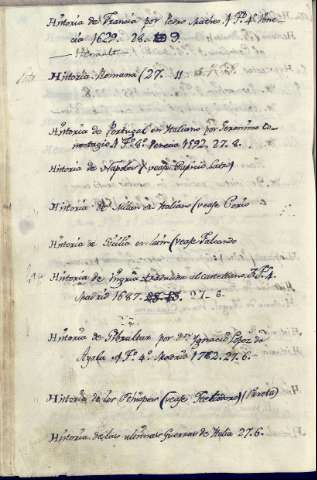 Historia de Francia por Pedro Matheo 1 tº. 4º. Vene
cia 1629. 28. 9.
Henault
Historia Romana (27. 11
Historia de Portugal en Italiano por Jeronimo Co
nestagio 1 tº. 4º. Venecia 1592. 27. 8.
Historia de Napoles (vease
Historia de Milan en Italiano (vease Corio
Historia de Sicilia en latin (vease Falcando
Historia de Ungria traducida al castellano 3. tº. 4.
Madrid 1687. 27. 6.
Historia de Gibraltar por dn. Ignacio Lopez de
Ayala 1 tº. 4º. Madrid 1782. 27. 6.
Historia de los (vease
Historia de las ultimas Guerras de Italia 27. 6.